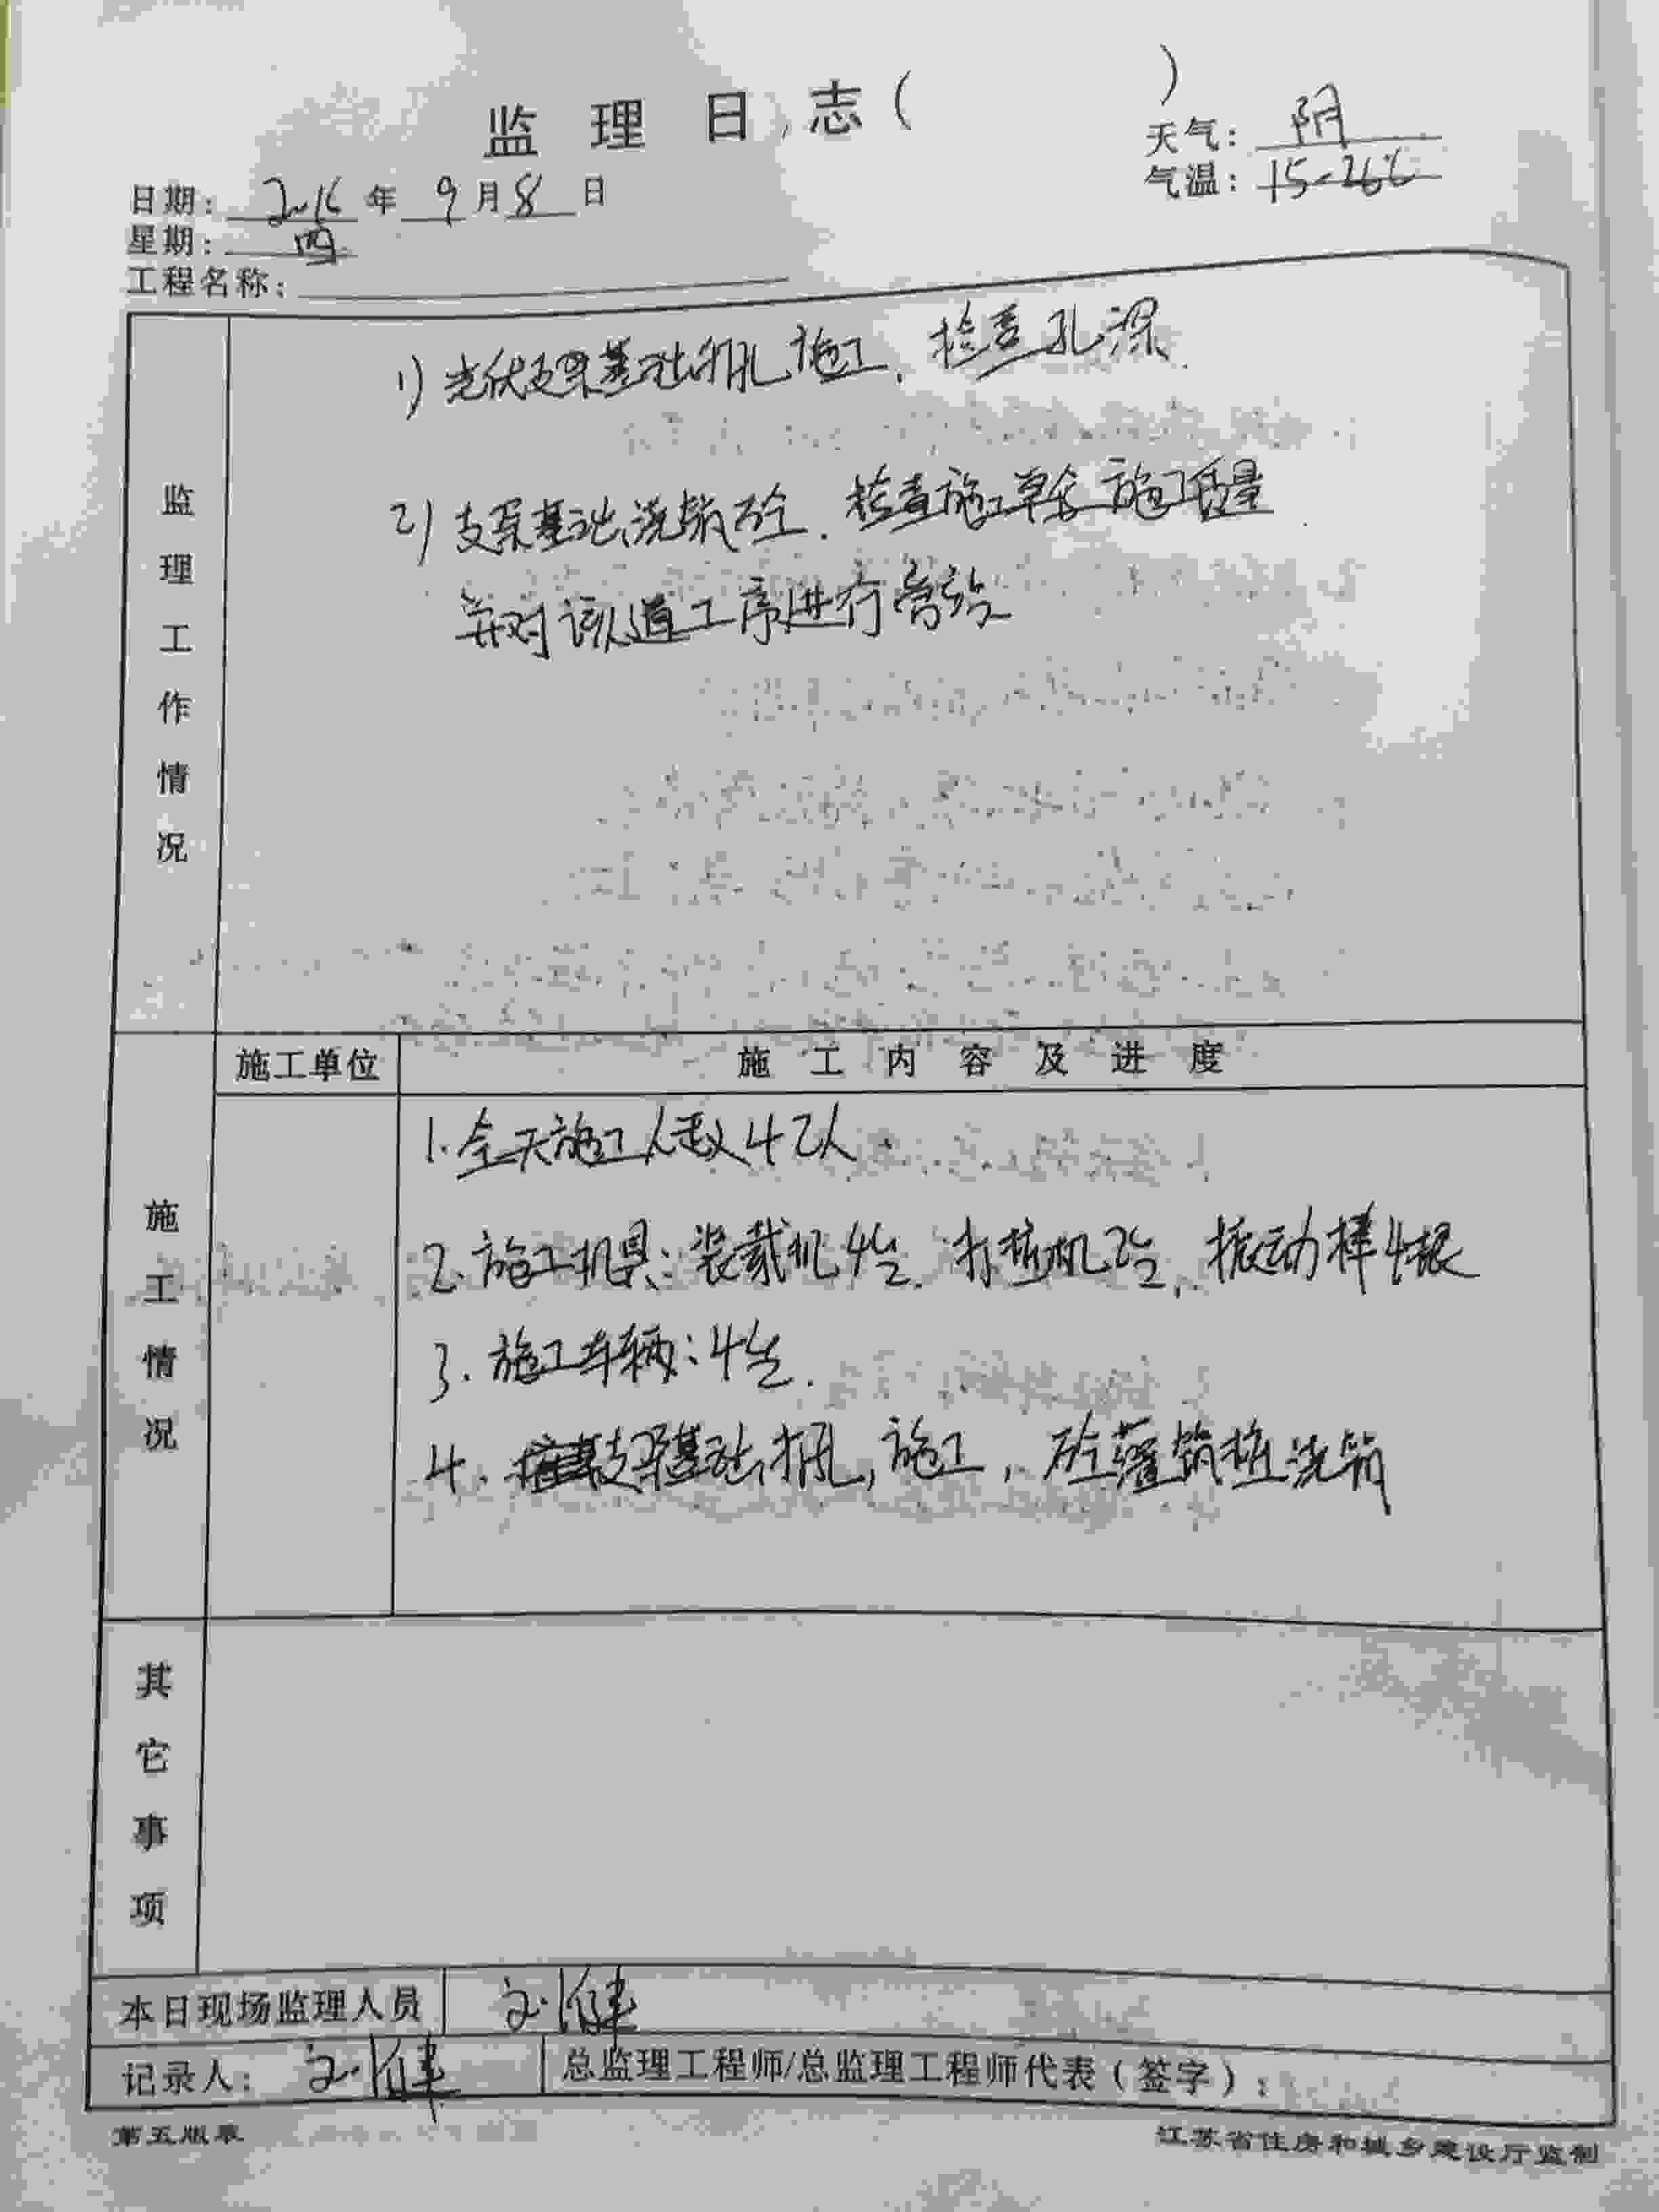 监理日志（ ）
天气：阴
气温：15-26℃
日期：2016年9月8日
星期：四
工程名称：
监理工作情况
1) 光伏支架基础打孔施工，检查孔深.
2) 支架基础浇筑砼．检查施工单位施工质量
并对该道工序进行旁站
施工单位
施工内容及进度
施工情况
1.全天施工人数42人
2.施工机具：装载机4台．打桩机2台，振动棒4根
3.施工车辆：4台.
4、支架基础打孔，施工，砼灌筑桩浇筑
其它事项
本日现场监理人员
记录人：
总监理工程师/总监理工程师代表（签字）：
第五版表
江苏省住房和城乡建设厅监制